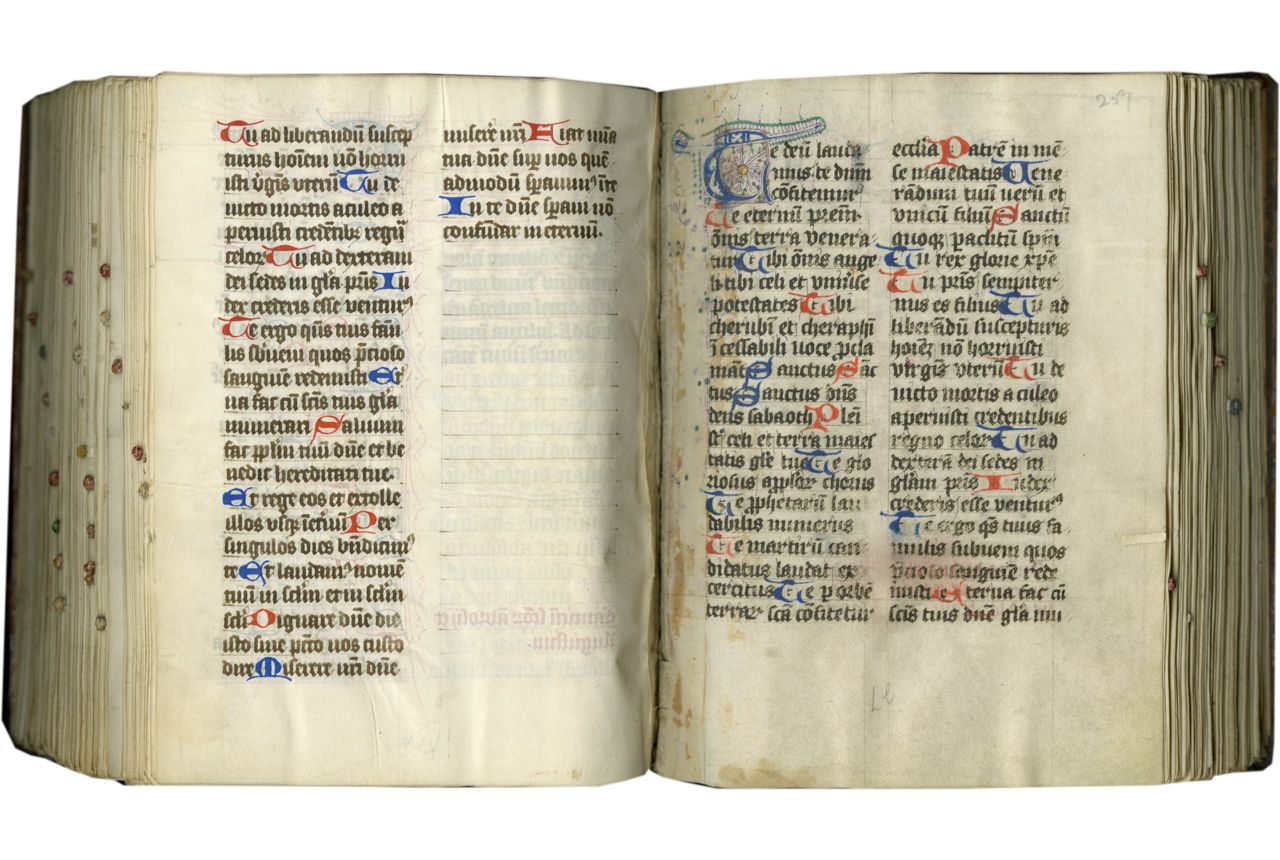 Tu ad liberandū suscep
turus hoīem nō horru
isti v̓gīs vterū Tu de
uicto mortis aculeo a
peruisti credētib; regnū
celoꝝ Tu ad dexteram
dei sedes in gl̄a pr̄is Iu
dex crederis esse ventur᾽
Te ergo qūs tuis fāu
lis sb̓ueni quos p̄cioso
sanguine redemisti Et̓
na fac cū sc̄is tuis gl̄a
munerari Saluum
fac pplm̄ tuū dn̄e et be
nedic hereditati tue.
Et rege eos et extolle
illos vsq; inet̓nū Per
singulos dies bn̄dicim᾽
te Et laudam᾽ nomē
tuū in sc̄lm et in sc̄lm
sc̄li Dignare dn̄e die
isto sine pc̄to nos custo
dire Miserere nr̄i dn̄e
miserē nr̄i Fiat mīa
tua dn̄e sup̄ nos quē
admodū sperauim᾽ īte
In te dn̄e sperāui nō
confundar in eternū.
257
Te deū lauda
mus te dn̄m
cōfitemur
Te eternū pr̄em
ōnis terra venera
tur Tibi ōnis ange
li tibi celi et vniūse
potestates Tibi
cherubī et cheraphī
īcessabili uoce ꝓcla
māt Sanctus Sāc
tus Sanctus dn̄s
deus sabaoth Pleī
st̄ celi et terra maies
tatis gl̄e tue Te glo
riosus apl̓oꝝ chorus
Te ꝓphetarū lau
dabilis numerus
Te martirū can
didatus laudat ex
ercitus Te ꝑ orbē
terraꝝ scā cōfitetur
ecclīa Patrē in mē
se maiestatis Uene
rādum tuū uerū et
vnicū filiū Sanctū
quoq; pac̄litū sp̄m
Tu rex glorie xp̄e
Tu pr̄is sempiter
nus es filius Tu ad
liberādū suscepturis
hoiēꝫ nō horruisti
virgīs vterū Tu de
uicto mortis aculeo
aperuisti credentibus
regno celoꝝ Tu ad
dexterā dei sedes in
gl̄am pr̄is Iudex
crederis esse ventur᾽
Te ergo qs̄ tuis fa
mulis subueni quos
p̄cioso sanguinē rede
misti Eterna fac cū
scīs tuis dn̄e gl̄a mu